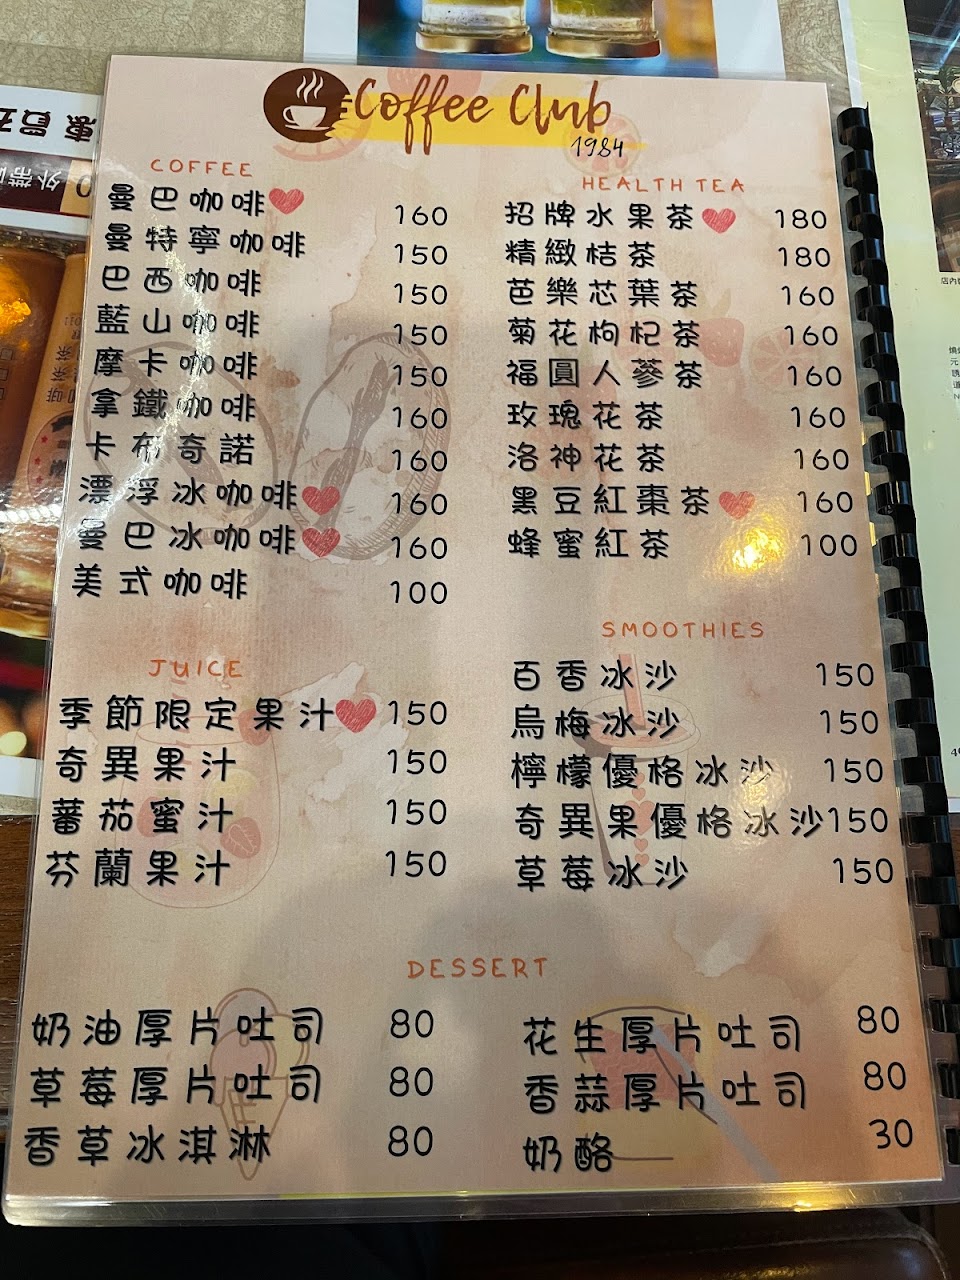 Coffee Club
1984
COFFEE
曼巴咖啡 160
曼特寧咖啡 150
巴西咖啡 150
藍山咖啡 150
摩卡咖啡 150
拿鐵咖啡 160
卡布奇諾 160
漂浮冰咖啡 160
曼巴冰咖啡 160
美式咖啡 100
HEALTH TEA
招牌水果茶 180
精緻桔茶 180
芭樂芯葉茶 160
菊花枸杞茶 160
福圓人蔘茶 160
玫瑰花茶 160
洛神花茶 160
黑豆紅棗茶 160
蜂蜜紅茶 100
JUICE
季節限定果汁 150
奇異果汁 150
蕃茄蜜汁 150
芬蘭果汁 150
SMOOTHIES
百香冰沙 150
烏梅冰沙 150
檸檬優格冰沙 150
奇異果優格冰沙 150
草莓冰沙 150
DESSERT
奶油厚片吐司 80
草莓厚片吐司 80
香草冰淇淋 80
花生厚片吐司 80
香蒜厚片吐司 80
奶酪 30